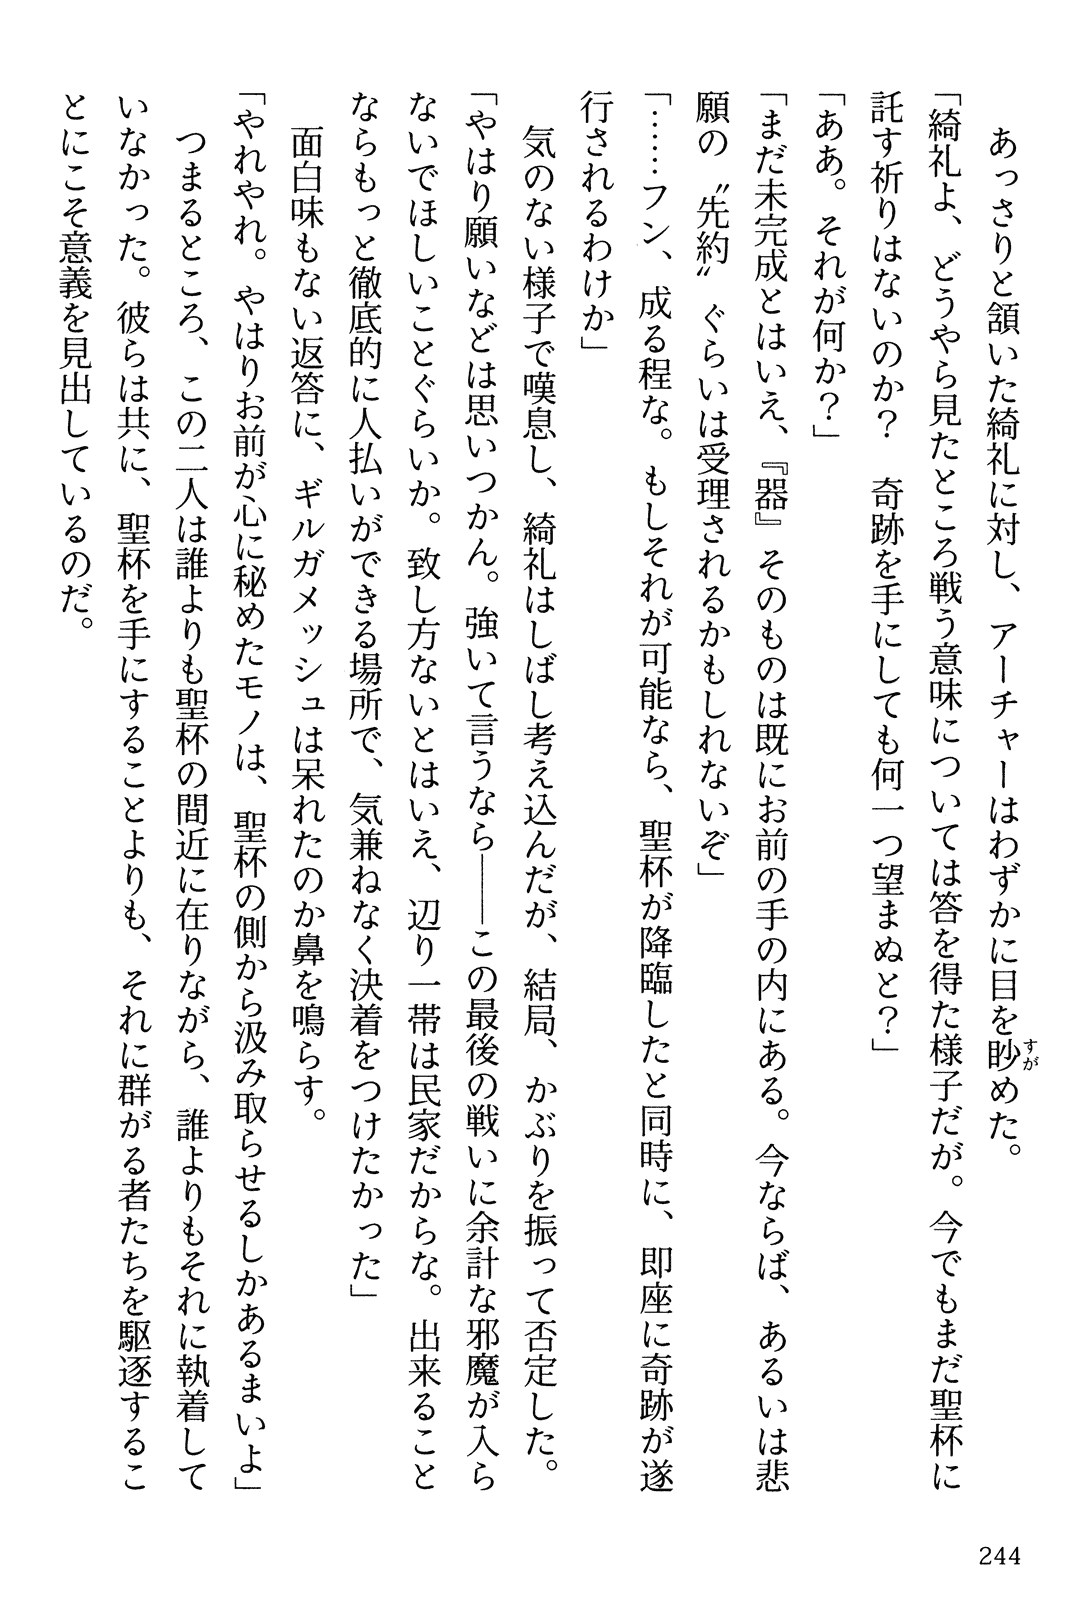 あっさりと頷いた綺礼に対し、アーチャーはわずかに目を眇めた。
すが
「綺礼よ、どうやら見たところ戦う意味については答を得た様子だが。今でもまだ聖杯に
託す祈りはないのか？　奇跡を手にしても何一つ望まぬと？」
「ああ。それが何か？」
「まだ未完成とはいえ、『器』そのものは既にお前の手の内にある。今ならば、あるいは悲
願の〝先約〟ぐらいは受理されるかもしれないぞ」
「……フン、成る程な。もしそれが可能なら、聖杯が降臨したと同時に、即座に奇跡が遂
行されるわけか」
気のない様子で嘆息し、綺礼はしばし考え込んだが、結局、かぶりを振って否定した。
「やはり願いなどは思いつかん。強いて言うなら――この最後の戦いに余計な邪魔が入ら
ないでほしいことぐらいか。致し方ないとはいえ、辺り一帯は民家だからな。出来ること
ならもっと徹底的に人払いができる場所で、気兼ねなく決着をつけたかった」
面白味もない返答に、ギルガメッシュは呆れたのか鼻を鳴らす。
「やれやれ。やはりお前が心に秘めたモノは、聖杯の側から汲み取らせるしかあるまいよ」
つまるところ、この二人は誰よりも聖杯の間近に在りながら、誰よりもそれに執着して
いなかった。彼らは共に、聖杯を手にすることよりも、それに群がる者たちを駆逐するこ
とにこそ意義を見出しているのだ。
244